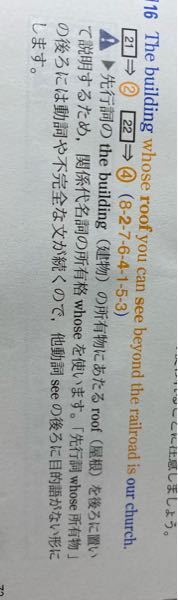 116 The building whose roof you can see beyond the railroad is our church.
21 ⇒ ② 22 ⇒ ④ (8-2-7-6-4-1-5-3)
▶先行詞の the building（建物）の所有物にあたる roof（屋根）を後ろに置い
て説明するため，関係代名詞の所有格 whose を使います。「先行詞 whose 所有物」
の後ろには動詞や不完全な文が続くので，他動詞 see の後ろに目的語がない形に
します。
ことに注意しましょう。